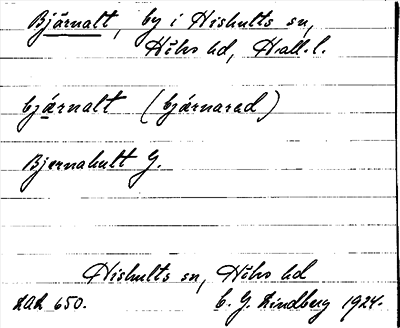 Bjärnalt, by i Hishults sn,
Höks hd, Hall. l.
bjärnalt (bjärnarad)
Bjernahult G.
Hishults sn, Höks hd
LAL 650. C. G. Lindberg 1924.